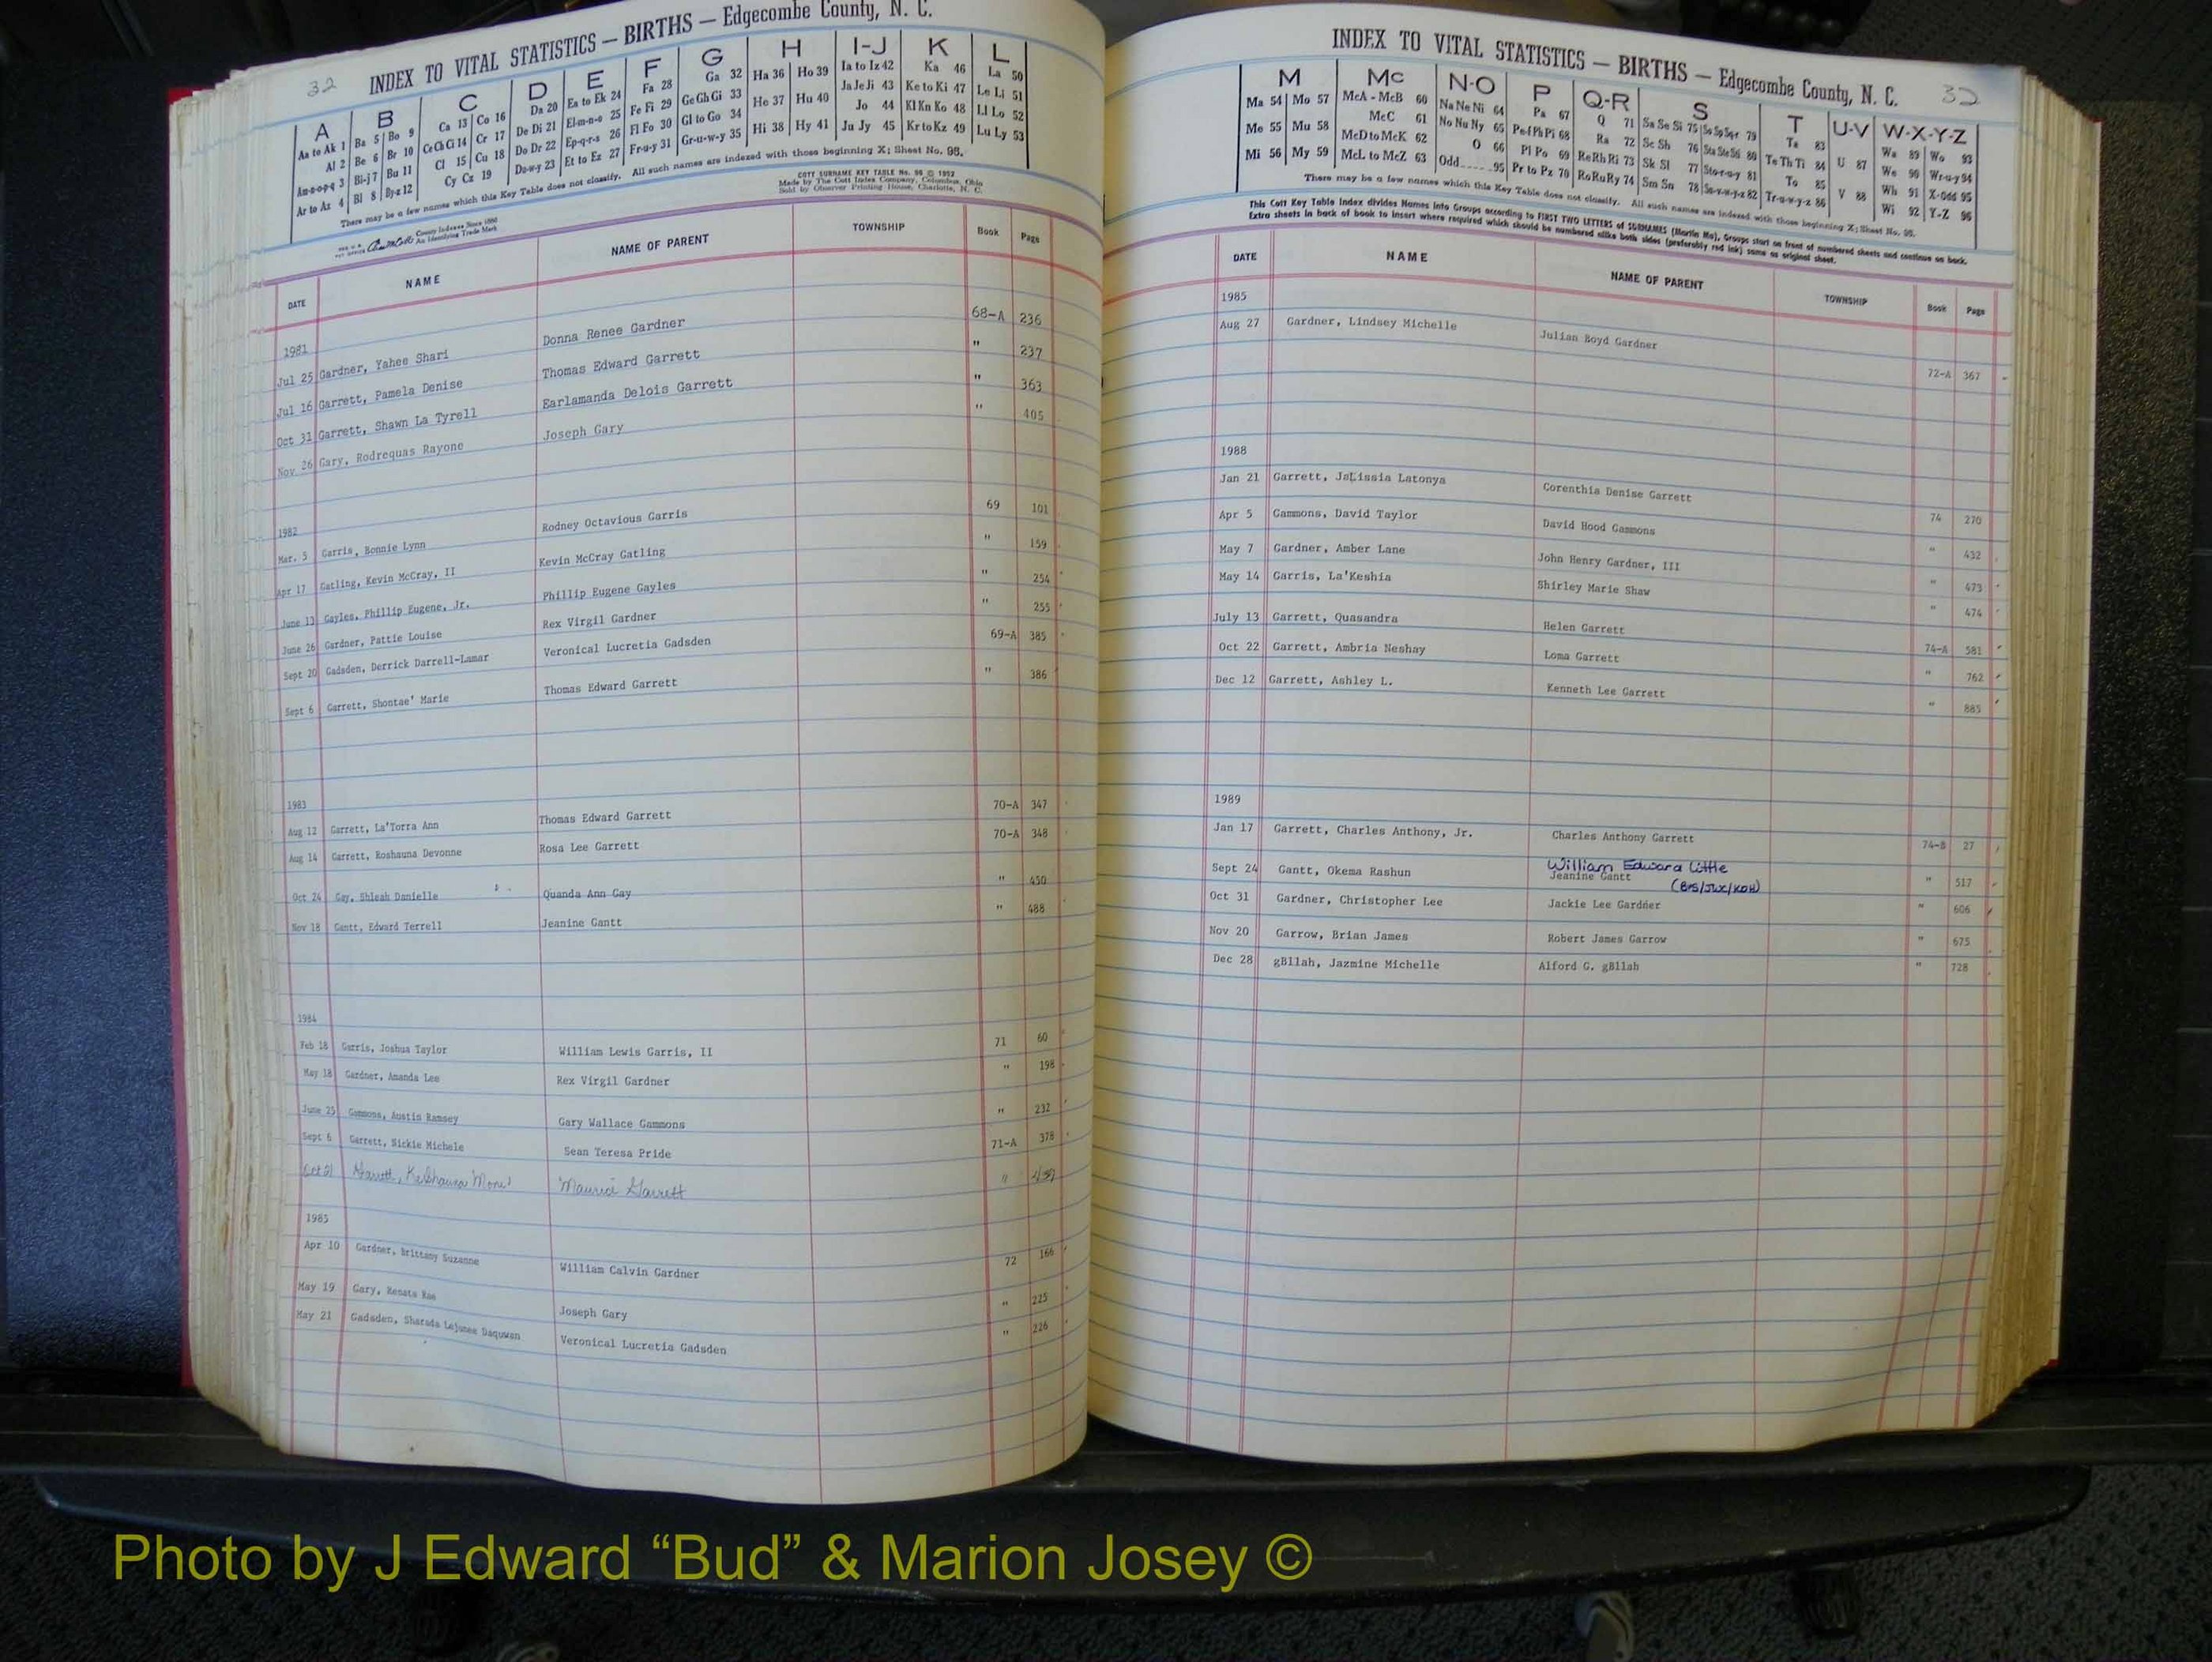 32
INDEX TO VITAL STATISTICS — BIRTHS — Edgecombe County, N. C.
A B C D E F G H I-J K L
Aa to Ak 1 Ba 5 Bo 9 Ca 13 Co 16 Da 20 Ea to Ek 24 Fa 28 Ga 32 Ha 36 Ho 39 Ia to Iz 42 Ka 46 La 50
Al 2 Be 6 Br 10 Ce Ch Ci 14 Cr 17 De Di 21 El-m-n-o 25 Fe Fi 29 Ge Gh Gi 33 He 37 Hu 40 Ja Je Ji 43 Ke to Ki 47 Le Li 51
Am-n-o-p-q 3 Bi-j 7 Bu 11 Cl 15 Cu 18 Do Dr 22 Ep-q-r-s 26 Fl Fo 30 Gl to Go 34 Hi 38 Hy 41 Jo 44 Kl Kn Ko 48 Ll Lo 52
Ar to Az 4 Bl 8 By-z 12 Cy Cz 19 Du-w-y 23 Et to Ez 27 Fr-u-y 31 Gr-u-w-y 35 Ju Jy 45 Kr to Kz 49 Lu Ly 53
There may be a few names which this Key Table does not classify. All such names are indexed with those beginning X; Sheet No. 95.
COTT SURNAME KEY TABLE No. 96 © 1952
Made by The Cott Index Company, Columbus, Ohio
Sold by Observer Printing House, Charlotte, N. C.
County Indexes Since 1888
An Identifying Trade Mark
DATE NAME NAME OF PARENT TOWNSHIP Book Page
1981
Jul 25 Gardner, Yahee Shari Donna Renee Gardner 68-A 236
Jul 16 Garrett, Pamela Denise Thomas Edward Garrett " 237
Oct 31 Garrett, Shawn La Tyrell Earlamanda Delois Garrett " 363
Nov 26 Gary, Rodrequas Rayone Joseph Gary " 405
1982
Mar. 5 Garris, Bonnie Lynn Rodney Octavious Garris 69 101
Apr 17 Gatling, Kevin McCray, II Kevin McCray Gatling " 159
June 13 Gayles, Phillip Eugene, Jr. Phillip Eugene Gayles " 254
June 26 Gardner, Pattie Louise Rex Virgil Gardner " 255
Sept 20 Gadsden, Derrick Darrell-Lamar Veronical Lucretia Gadsden 69-A 385
Sept 6 Garrett, Shontae' Marie Thomas Edward Garrett " 386
1983
Aug 12 Garrett, La'Torra Ann Thomas Edward Garrett 70-A 347
Aug 14 Garrett, Roshauna Devonne Rosa Lee Garrett 70-A 348
Oct 24 Gay, Shleah Danielle Quanda Ann Gay " 450
Nov 18 Gantt, Edward Terrell Jeanine Gantt " 488
1984
Feb 18 Garris, Joshua Taylor William Lewis Garris, II 71 60
May 18 Gardner, Amanda Lee Rex Virgil Gardner " 198
June 25 Gammons, Austin Ramsey Gary Wallace Gammons " 232
Sept 6 Garrett, Nickie Michele Sean Teresa Pride 71-A 378
Oct 21 Garrett, Maurice Garrett "
1985
Apr 10 Gardner, Brittany Suzanne William Calvin Gardner 72 166
May 19 Gary, Renata Rae Joseph Gary " 225
May 21 Gadsden, Sharada Lejunee Daquwan Veronical Lucretia Gadsden " 226
INDEX TO VITAL STATISTICS — BIRTHS — Edgecombe County, N. C. 32
M Mc N-O P Q-R S T U-V W-X-Y-Z
Ma 54 Mo 57 McA - McB 60 Na Ne Ni 64 Pa 67 Q 71 Sa Se Si 75 So Sp Sq-r 79 Ta 83 U 87 Wa 89 Wo 93
Me 55 Mu 58 McC 61 No Nu Ny 65 Pe-f Ph Pi 68 Ra 72 Sc Sh 76 Sta Ste Sti 80 Te Th Ti 84 V 88 We 90 Wr-u-y 94
Mi 56 My 59 McD to McK 62 O 66 Pl Po 69 Re Rh Ri 73 Sk Sl 77 Sto-r-u-y 81 To 85 Wh 91 X-Odd 95
McL to McZ 63 Odd 95 Pr to Pz 70 Ro Ru Ry 74 Sm Sn 78 Su-v-w-y-z 82 Tr-u-w-y-z 86 Wi 92 Y-Z 96
There may be a few names which this Key Table does not classify. All such names are indexed with those beginning X; Sheet No. 95.
This Cott Key Table Index divides Names into Groups according to FIRST TWO LETTERS of SURNAMES (Martin Ma). Groups start on front of numbered sheets and continue on back.
Extra sheets in back of book to insert where required which should be numbered alike both sides (preferably red ink) same as original sheet.
DATE NAME NAME OF PARENT TOWNSHIP Book Page
1985
Aug 27 Gardner, Lindsey Michelle Julian Boyd Gardner 72-A 367
1988
Jan 21 Garrett, JaLissia Latonya Corenthia Denise Garrett 74 270
Apr 5 Gammons, David Taylor David Hood Gammons " 432
May 7 Gardner, Amber Lane John Henry Gardner, III " 473
May 14 Garris, La'Keshia Shirley Marie Shaw " 474
July 13 Garrett, Quasandra Helen Garrett 74-A 581
Oct 22 Garrett, Ambria Neshay Loma Garrett " 762
Dec 12 Garrett, Ashley L. Kenneth Lee Garrett " 885
1989
Jan 17 Garrett, Charles Anthony, Jr. Charles Anthony Garrett 74-B 27
William Edward Little
Sept 24 Gantt, Okema Rashun Jeanine Gantt " 517
Oct 31 Gardner, Christopher Lee Jackie Lee Gardner " 606
Nov 20 Garrow, Brian James Robert James Garrow " 675
Dec 28 gBllah, Jazmine Michelle Alford G. gBllah " 728
Photo by J Edward “Bud” & Marion Josey ©